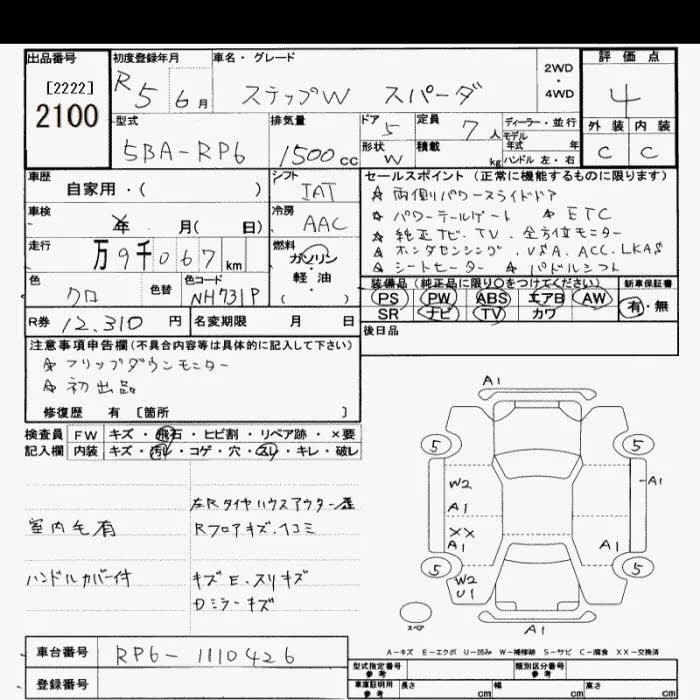 出品番号
[2222]
2100
初度登録年月
R5 6月
車名・グレード
ステップW スパーダ
2WD
・
4WD
評価点
4
外装 内装
C C
型式
5BA-RP6
排気量
1500cc
ドア 5
形状 W
定員 7人
積載 kg
ディーラー・並行
モデル
年式 年
ハンドル 左・右
車歴
自家用・( )
シフト
IAT
車検
年 月( 日)
冷房
AAC
走行
万9千067km
燃料
ガソリン
・
軽油
( )
色
クロ
色替
色コード
NH731P
R券 12,310円
名変期限 月 日
セールスポイント(正常に機能するものに限ります)
☆ 両側パワースライドドア
☆ パワーテールゲート ☆ ETC
☆ 純正ナビ、TV、全方位モニター
☆ ホンダセンシング、VSA、ACC、LKAS
☆ シートヒーター ☆ パドルシフト
装備品(純正品に限り○をつけてください)
PS PW ABS エアB AW
SR ナビ TV カワ
新車保証書
有・無
後日品
注意事項申告欄(不具合内容等は具体的に記入して下さい)
☆ フリップダウンモニター
☆ 初出品
修復歴 有 [箇所 ]
検査員
記入欄
FW キズ・飛石・ヒビ割・リペア跡・×要
内装 キズ・汚れ・コゲ・穴・スレ・キレ・破レ
左Rタイヤハウスアウター歪
室内毛有
Rフロアキズ・ヘコミ
ハンドルカバー付
キズE、スリキズ
Dミラーキズ
A1
5
5
W2
A1
A1
XX
A1
A1
5
5
W2
U1
スペア
A1
A-キズ E-エクボ U-凹み W-補修跡 S-サビ C-腐食 XX-交換済
車台番号
RP6-1110426
登録番号
型式指定番号
参考
類別区分番号
参考
車庫証明用
参考
長さ cm 幅 cm 高さ cm